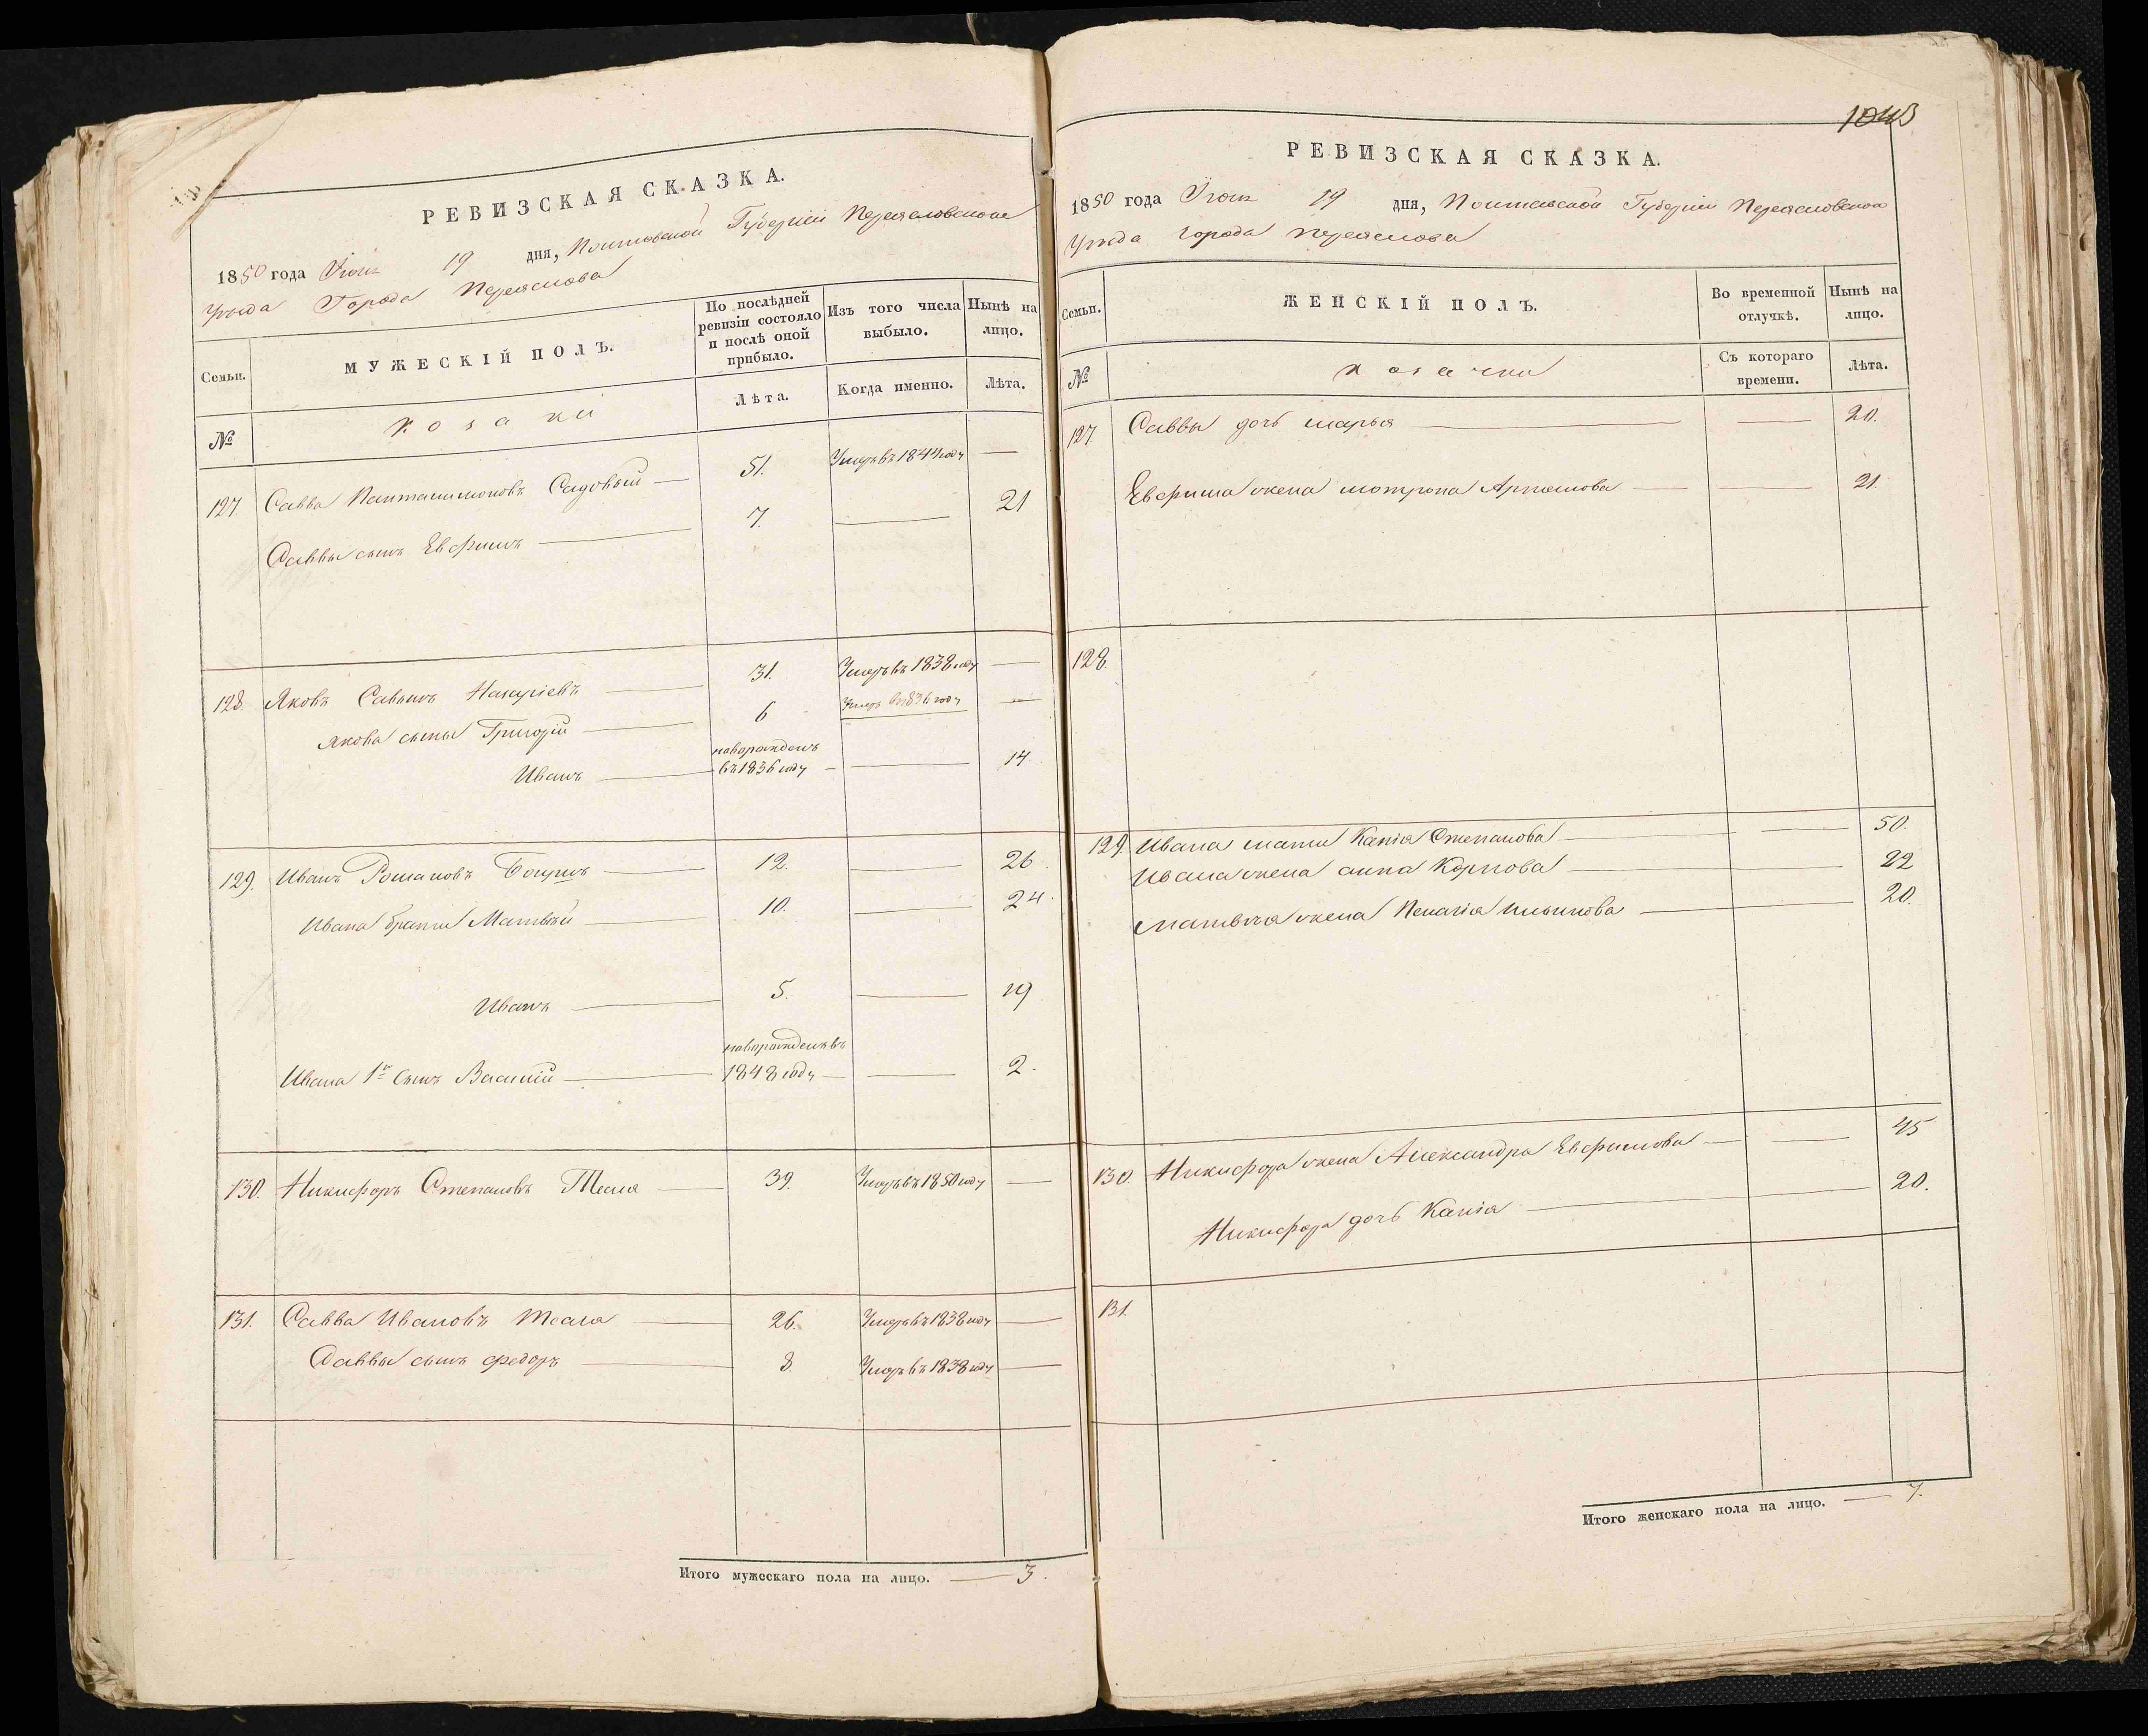 РЕВИЗСКАЯ СКАЗКА.
1850 года Іюня 19 дня, Полтавской Губерніи Переяславского
Уѣзда Города Переяслова
Семьи.
МУЖЕСКІЙ ПОЛЪ.
По послѣдней ревизіи состояло и послѣ оной прибыло.
Изъ того числа выбыло.
Нынѣ на лицо.
№
козаки
Лѣта.
Когда именно.
Лѣта.
127 Савва Пантилимоновъ Садовый — 51. Умеръ въ 1844 году —
Саввы сынъ Евфимъ — 7. — 21
128. Яковъ Савинъ Назаріевъ — 31. Умеръ въ 1838 году —
Якова сыны Григорій — 6 Умеръ въ 1836 году —
Иванъ — новорожденъ въ 1836 году — — 14
129. Иванъ Романовъ — 12. — 26.
Ивана братья Матвѣй — 10. — 24.
Иванъ — 5. — 19
Ивана 1го сынъ Василій — новорожденъ въ 1848 году — — 2.
130. Никифоръ Степановъ Тесля — 39. Умеръ въ 1850 году —
131. Савва Ивановъ Тесля — 26. Умеръ въ 1838 году —
Саввы сынъ Федоръ — 8. Умеръ въ 1838 году —
Итого мужескаго пола на лицо. — 3.
1043
РЕВИЗСКАЯ СКАЗКА.
1850 года Іюня 19 дня, Полтавской Губерніи Переясловского
Уѣзда города Переяслова
Семьи.
ЖЕНСКІЙ ПОЛЪ.
Во временной отлучкѣ.
Нынѣ на лицо.
№
козачки
Съ котораго времени.
Лѣта.
127. Саввы дочь Марья — — 20.
Евфима жена Мотрона Артемова — — 21.
128.
129. Ивана мати Капія Степанова — — 50.
Ивана жена Анна Карпова — 22
Матвѣя жена Пелагія — 20.
130. Никифора жена Александра Евфимова — — 45
Никифора дочь Капія — 20.
131.
Итого женскаго пола на лицо. — 7.